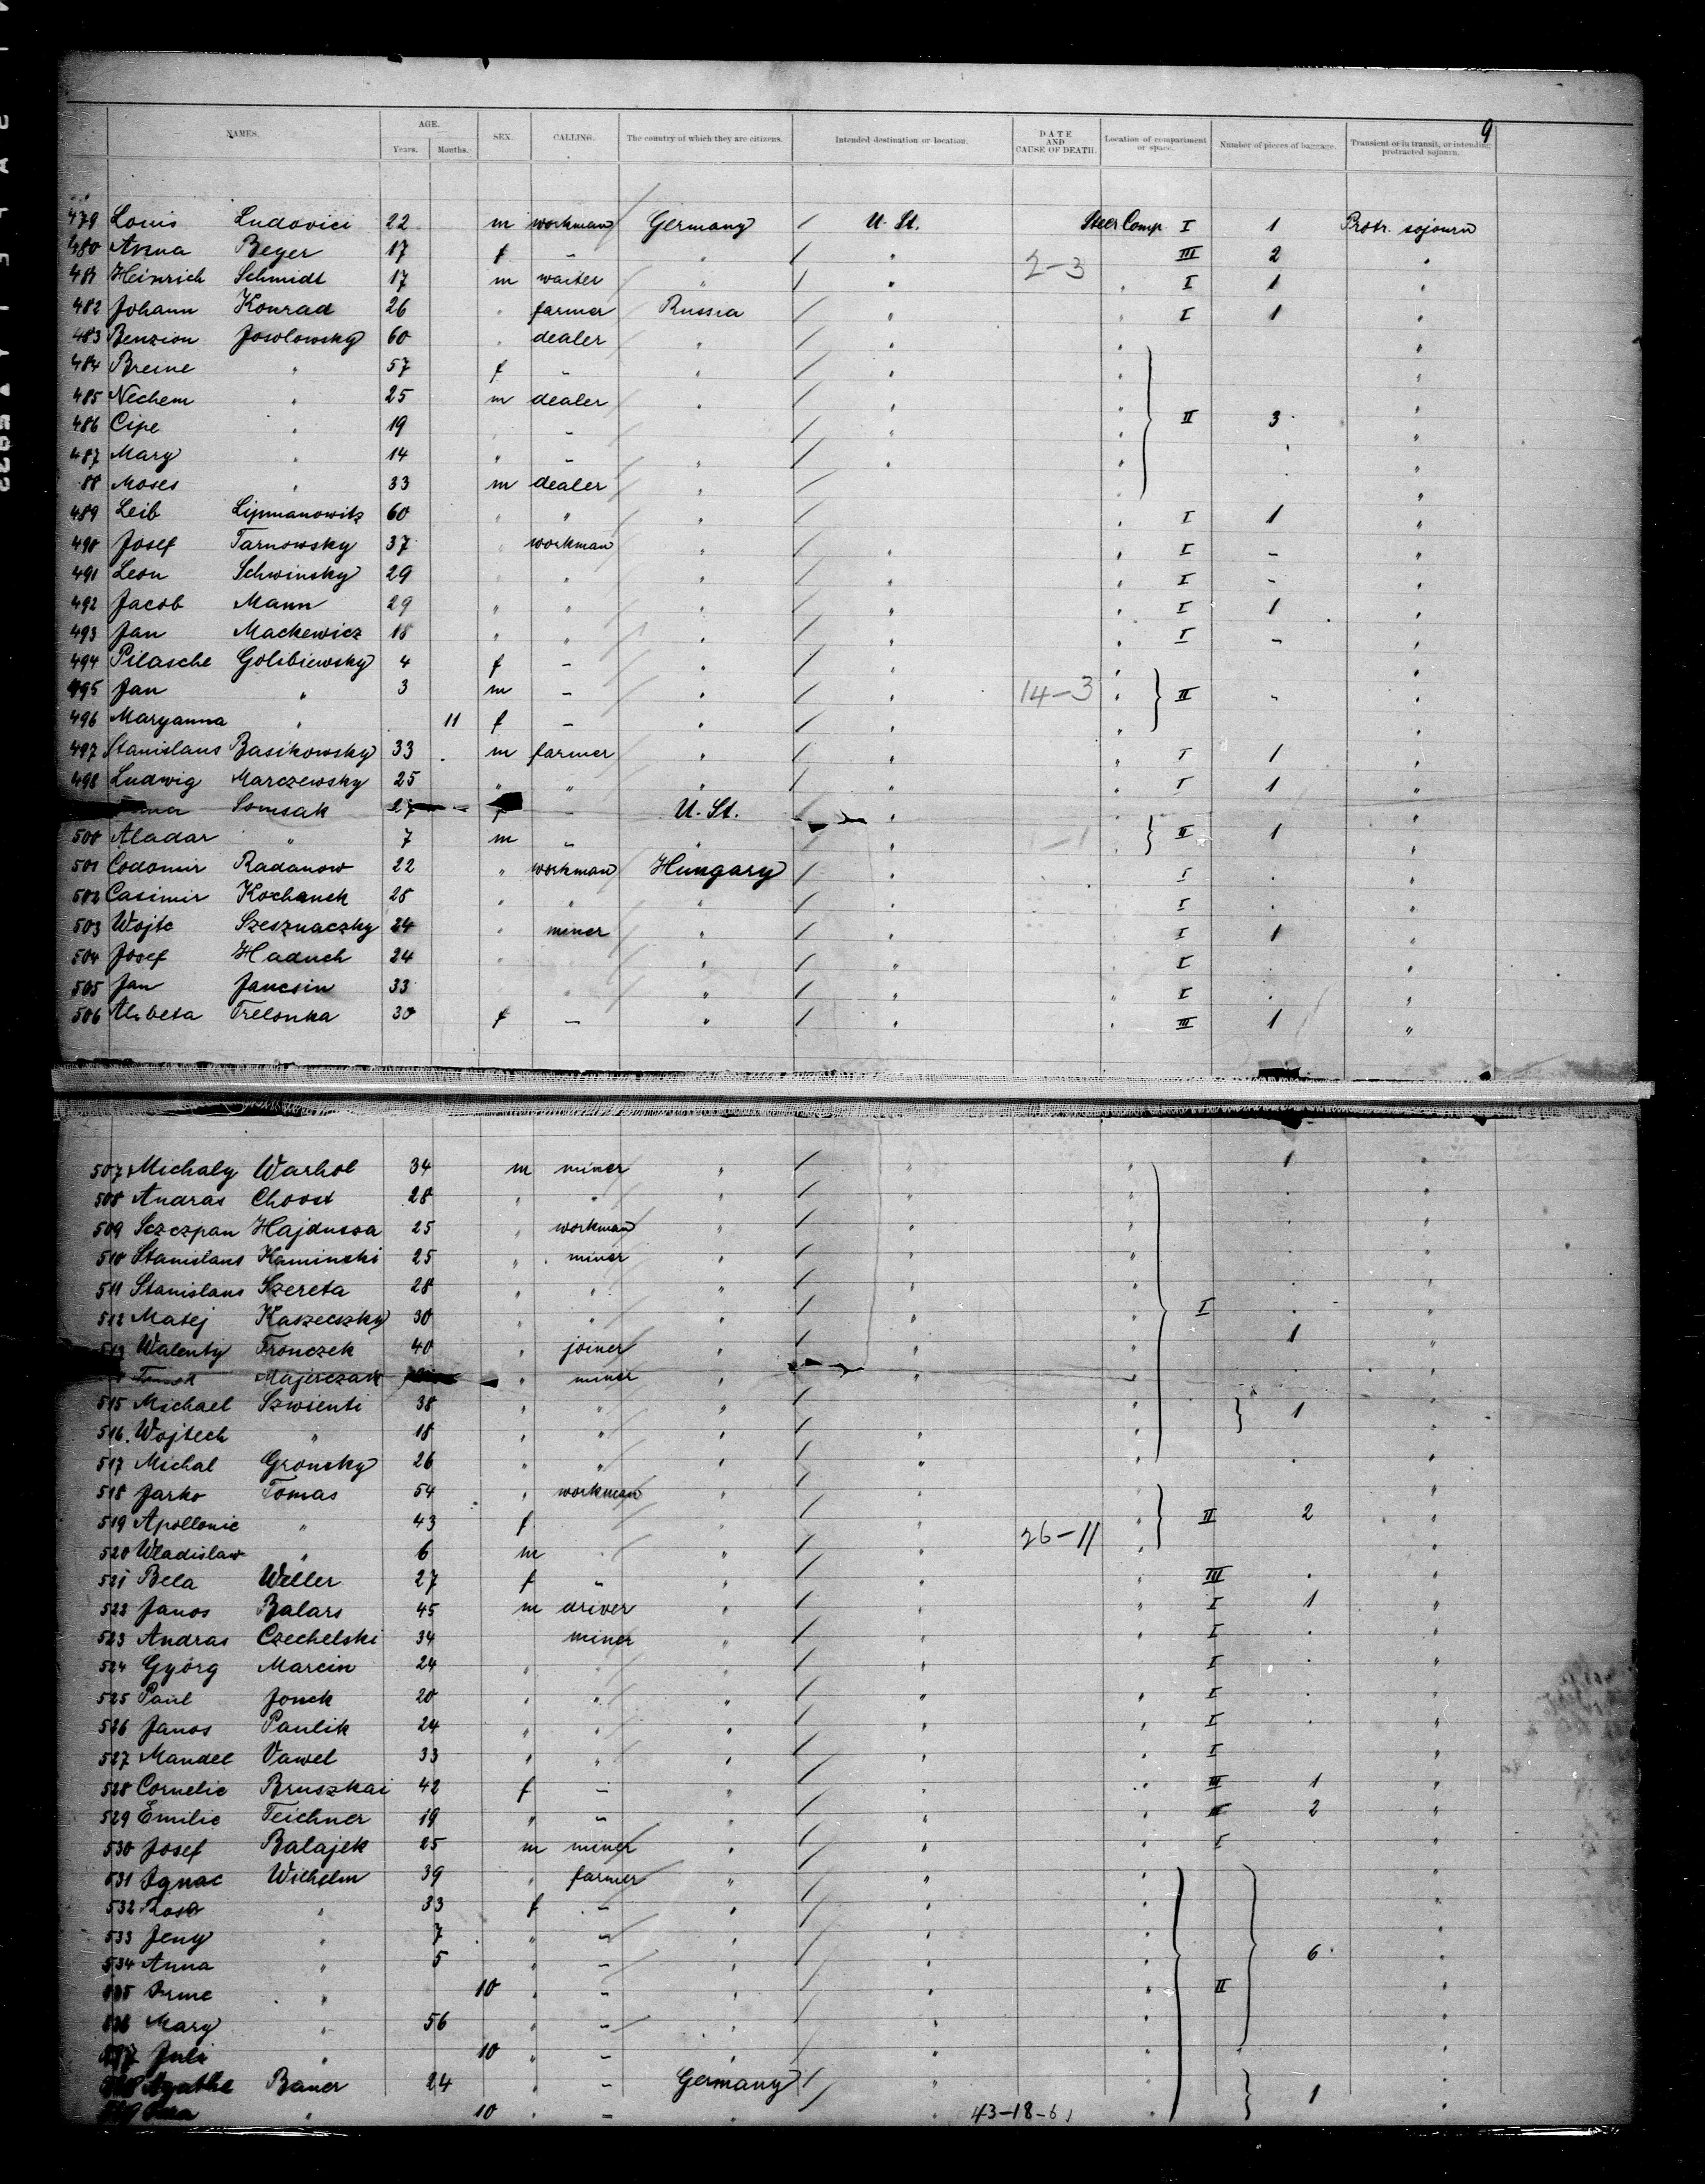 9
NAMES. AGE. SEX. CALLING. The country of which they are citizens. Intended destination or location. DATE AND CAUSE OF DEATH. Location of compartment or space. Number of pieces of baggage. Transient or in transit, or intending protracted sojourn.
Years. Months.
479 Louis Ludovici 22 m workman Germany / U. St. Steer Comp I 1 Protr. sojourn
480 Anna Beyer 17 f - " / " 2-3 III 2 "
481 Heinrich Schmidt 17 m waiter " / " " I 1 "
482 Johann Konrad 26 " farmer Russia / " " I 1 "
483 Benzion Josolowsky 60 " dealer " / " " "
484 Breine " 57 f - " / " " "
485 Nechem " 25 m dealer " / " " II 3 "
486 Cipe " 19 " - / " " "
487 Mary " 14 " - " / " " "
88 Moses " 33 m dealer " / " "
489 Leib Lipmanowitz 60 " " " / " I 1 "
490 Josef Tarnowsky 37 " workman " / " " I - "
491 Leon Schwinsky 29 " " " / " " I - "
492 Jacob Mann 29 " " " / " " I 1 "
493 Jan Mackewicz 18 " " " / " " I - "
494 Pilasche Golibiewsky 4 f - " / " " "
495 Jan " 3 m - " / " 14-3 " II - "
496 Maryanna " 11 f - " / " " "
497 Stanislaus Basikowsky 33 m farmer " / " " I 1 "
498 Ludwig Marczewsky 25 " " " / " " I 1 "
Somsak 27 f - U. St. / " " "
500 Aladar " 7 m - " / " " II 1 "
501 Codomir Radanow 22 " workman Hungary / " I " "
502 Casimir Kochanek 28 " " " / " I " "
503 Wojtc Szesznaczky 24 " miner " / " I 1 "
504 Josef Haduch 24 " " / " I " "
505 Jan Jancsin 33 " " " / " " I " "
506 Alzbeta Trelonka 30 f - " / " " III 1 "
507 Michaly Warhol 34 m miner " / " " 1 "
508 Andras Choost 28 " " " / " " " "
509 Sczczpan Hajdussa 25 " workman " / " " " "
510 Stanislaus Kaminski 25 " miner " / " " " "
511 Stanislaus Szereta 28 " " " / " " " "
512 Matej Kaszeczky 30 " " " / " I " "
513 Walenty Fronczek 40 " joiner " / " " 1 "
Majerczak " miner " " " " "
515 Michael Szwienti 38 " " " / " 1 "
516 Wojtech " 18 " " " / " " "
517 Michal Gronsky 26 " " " / " " " "
518 Jarko Tomas 54 " workman " / " "
519 Apollonie " 43 f " / " " II 2 "
520 Wladislaw " 6 m " " / " 26-11 " "
521 Bela Weller 27 f - " / " " III " "
522 Janos Balars 45 m driver " / " " I 1 "
523 Andras Czechelski 34 miner " / " " I " "
524 Györg Marcin 24 " " " / " I " "
525 Paul Jonek 20 " " " / " " I " "
526 Janos Paulik 24 " " " / " " I " "
527 Mandel Vawel 33 " " " / " " I "
528 Cornelie Bruszkai 42 f - " / " " III 1 "
529 Emilie Teichner 19 " - " / " " 2 "
530 Josef Balajek 25 m miner " / " " I " "
531 Ignac Wilhelm 39 " farmer " / " " "
532 Rosa " 33 f - " / " " "
533 Jeny " 7 " - " / " " "
534 Anna " 5 " - " / " " 6 "
535 Irme " 10 " - " / " " II "
536 Mary " 56 " - " / " " "
537 Juli " 10 " - " / " " "
Agathe Bauer 24 " - Germany / " " 1 "
" 10 " - " / " 43-18-61 " "